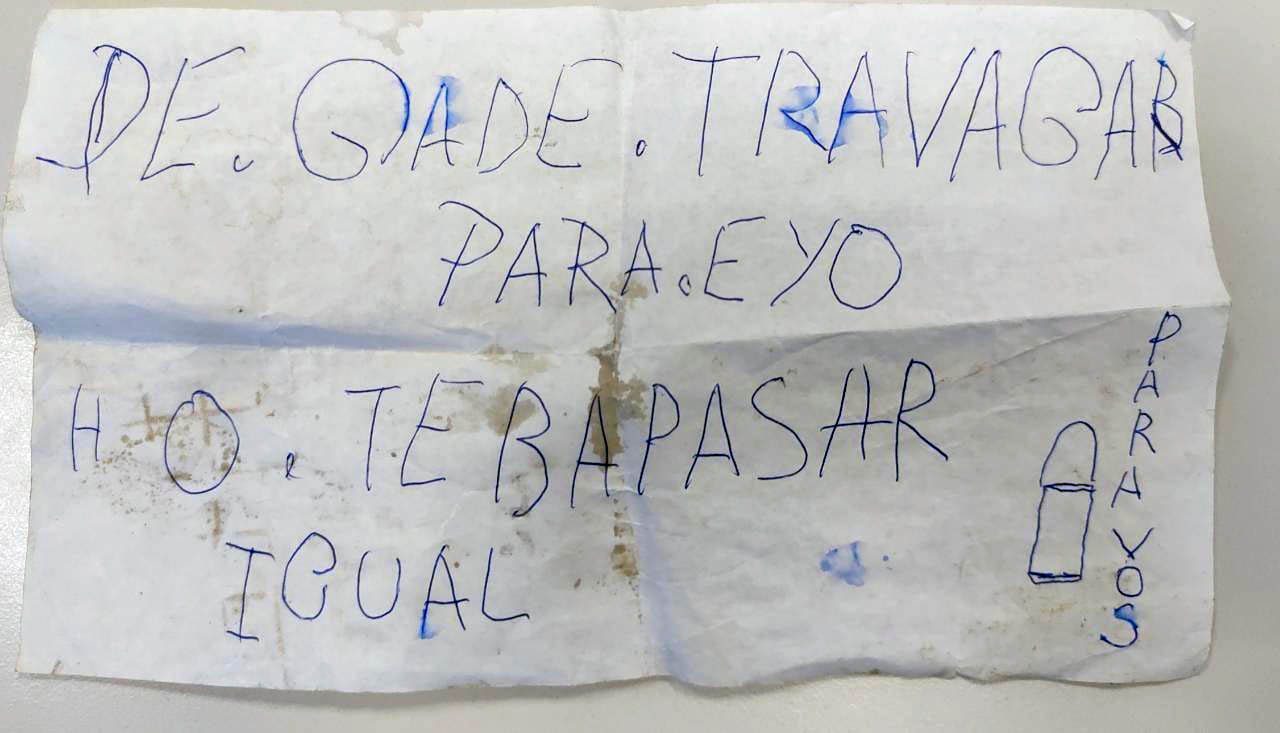 DE. GADE. TRAVAGAR
PARA. EYO
HO. TE BAPASAR
IGUAL
PARA VOS